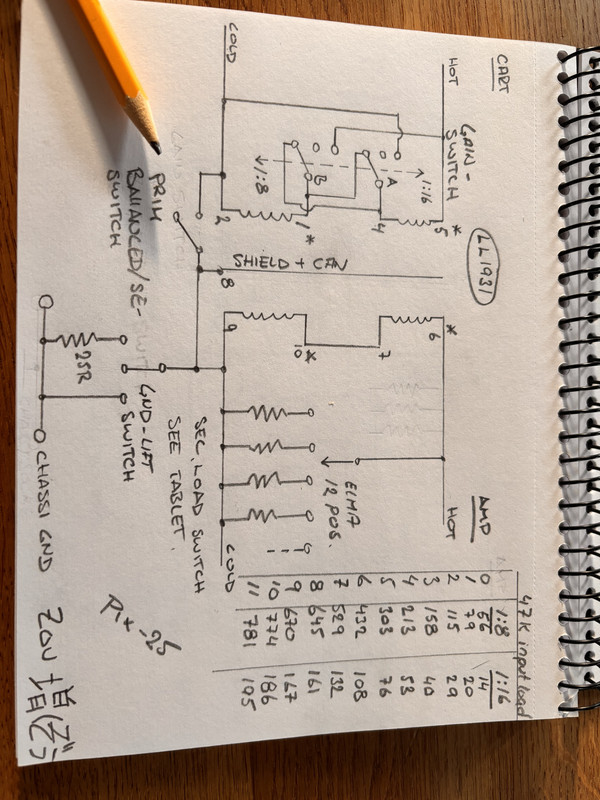 CART
LL1931
AMP
HOT
GAIN-
SWITCH
1:16
A
B
1:8
5 *
4
1 *
2
COLD
SHIELD + CAN
8
* 6
7
10 *
9
HOT
ELMA
12 POS.
COLD
SEC. LOAD SWITCH
SEE TABLET.
PRIM
BALLANCED/SE-
SWITCH
GND-LIFT
SWITCH
25R
CHASSI GND
47K input load
1:8 1:16
0 56 14
1 79 20
2 115 29
3 158 40
4 213 53
5 303 76
6 432 108
7 529 132
8 645 161
9 670 167
10 774 186
11 781 195